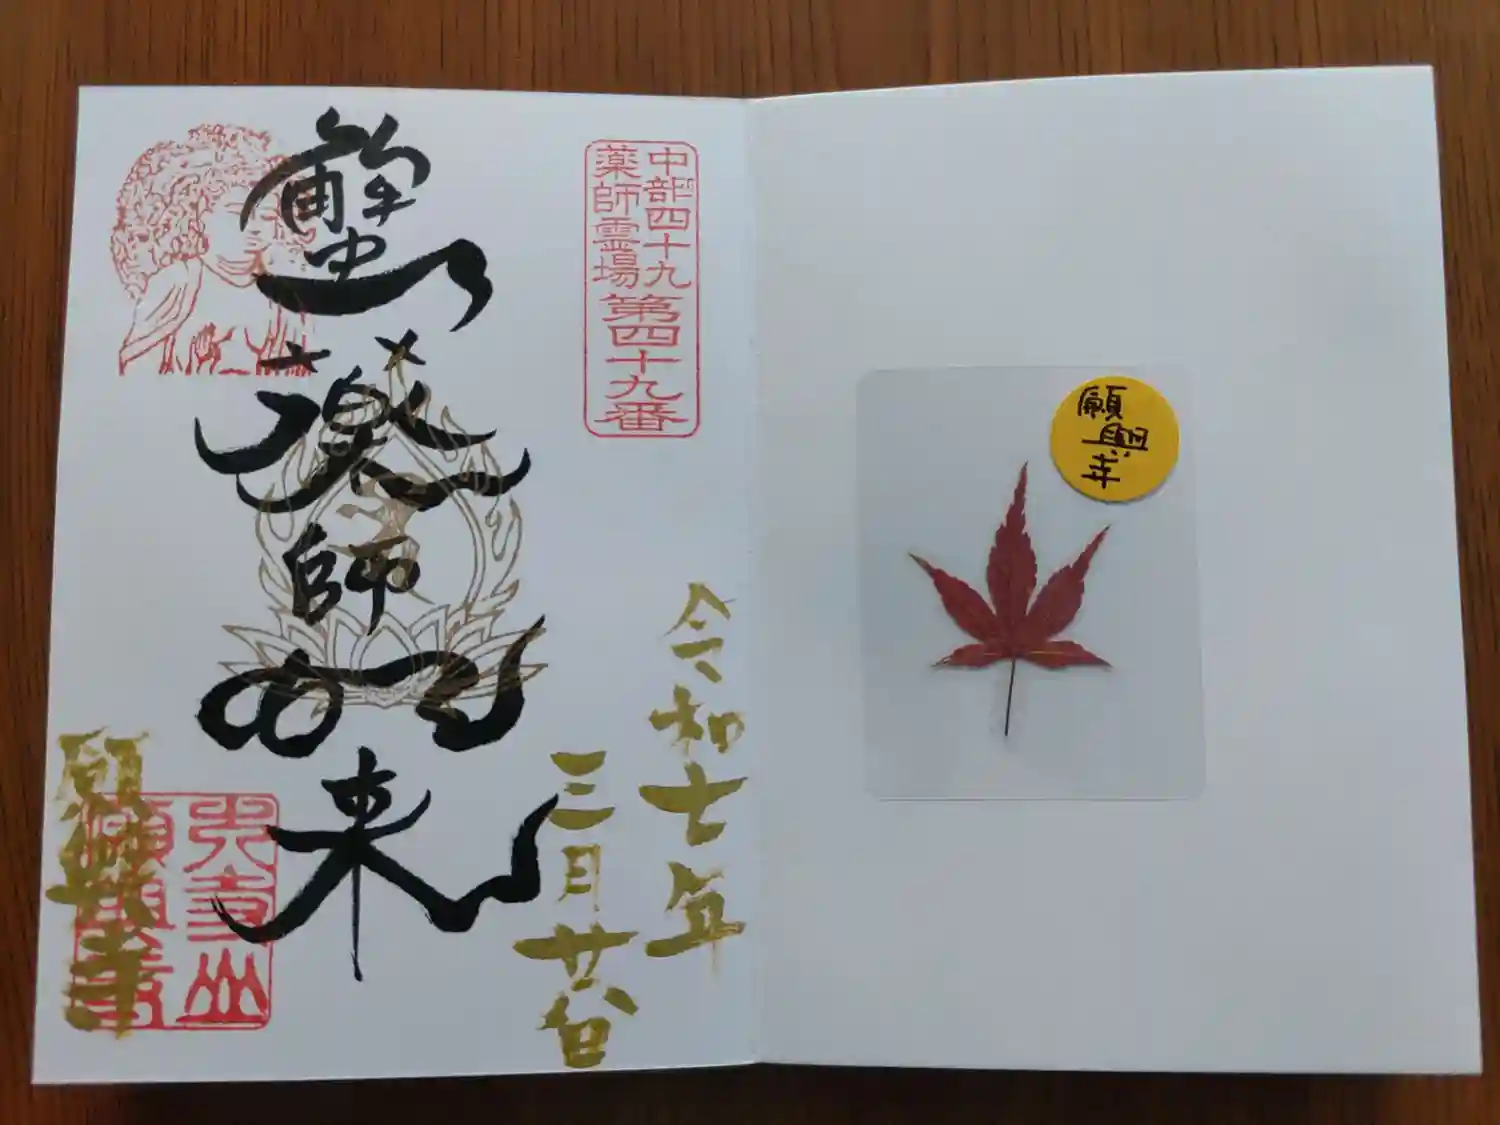 中部四十九
薬師霊場
第四十九番
蟹薬師如来
令和七年
三月廿八日
願興寺
大寺山
願興寺
願
興
寺